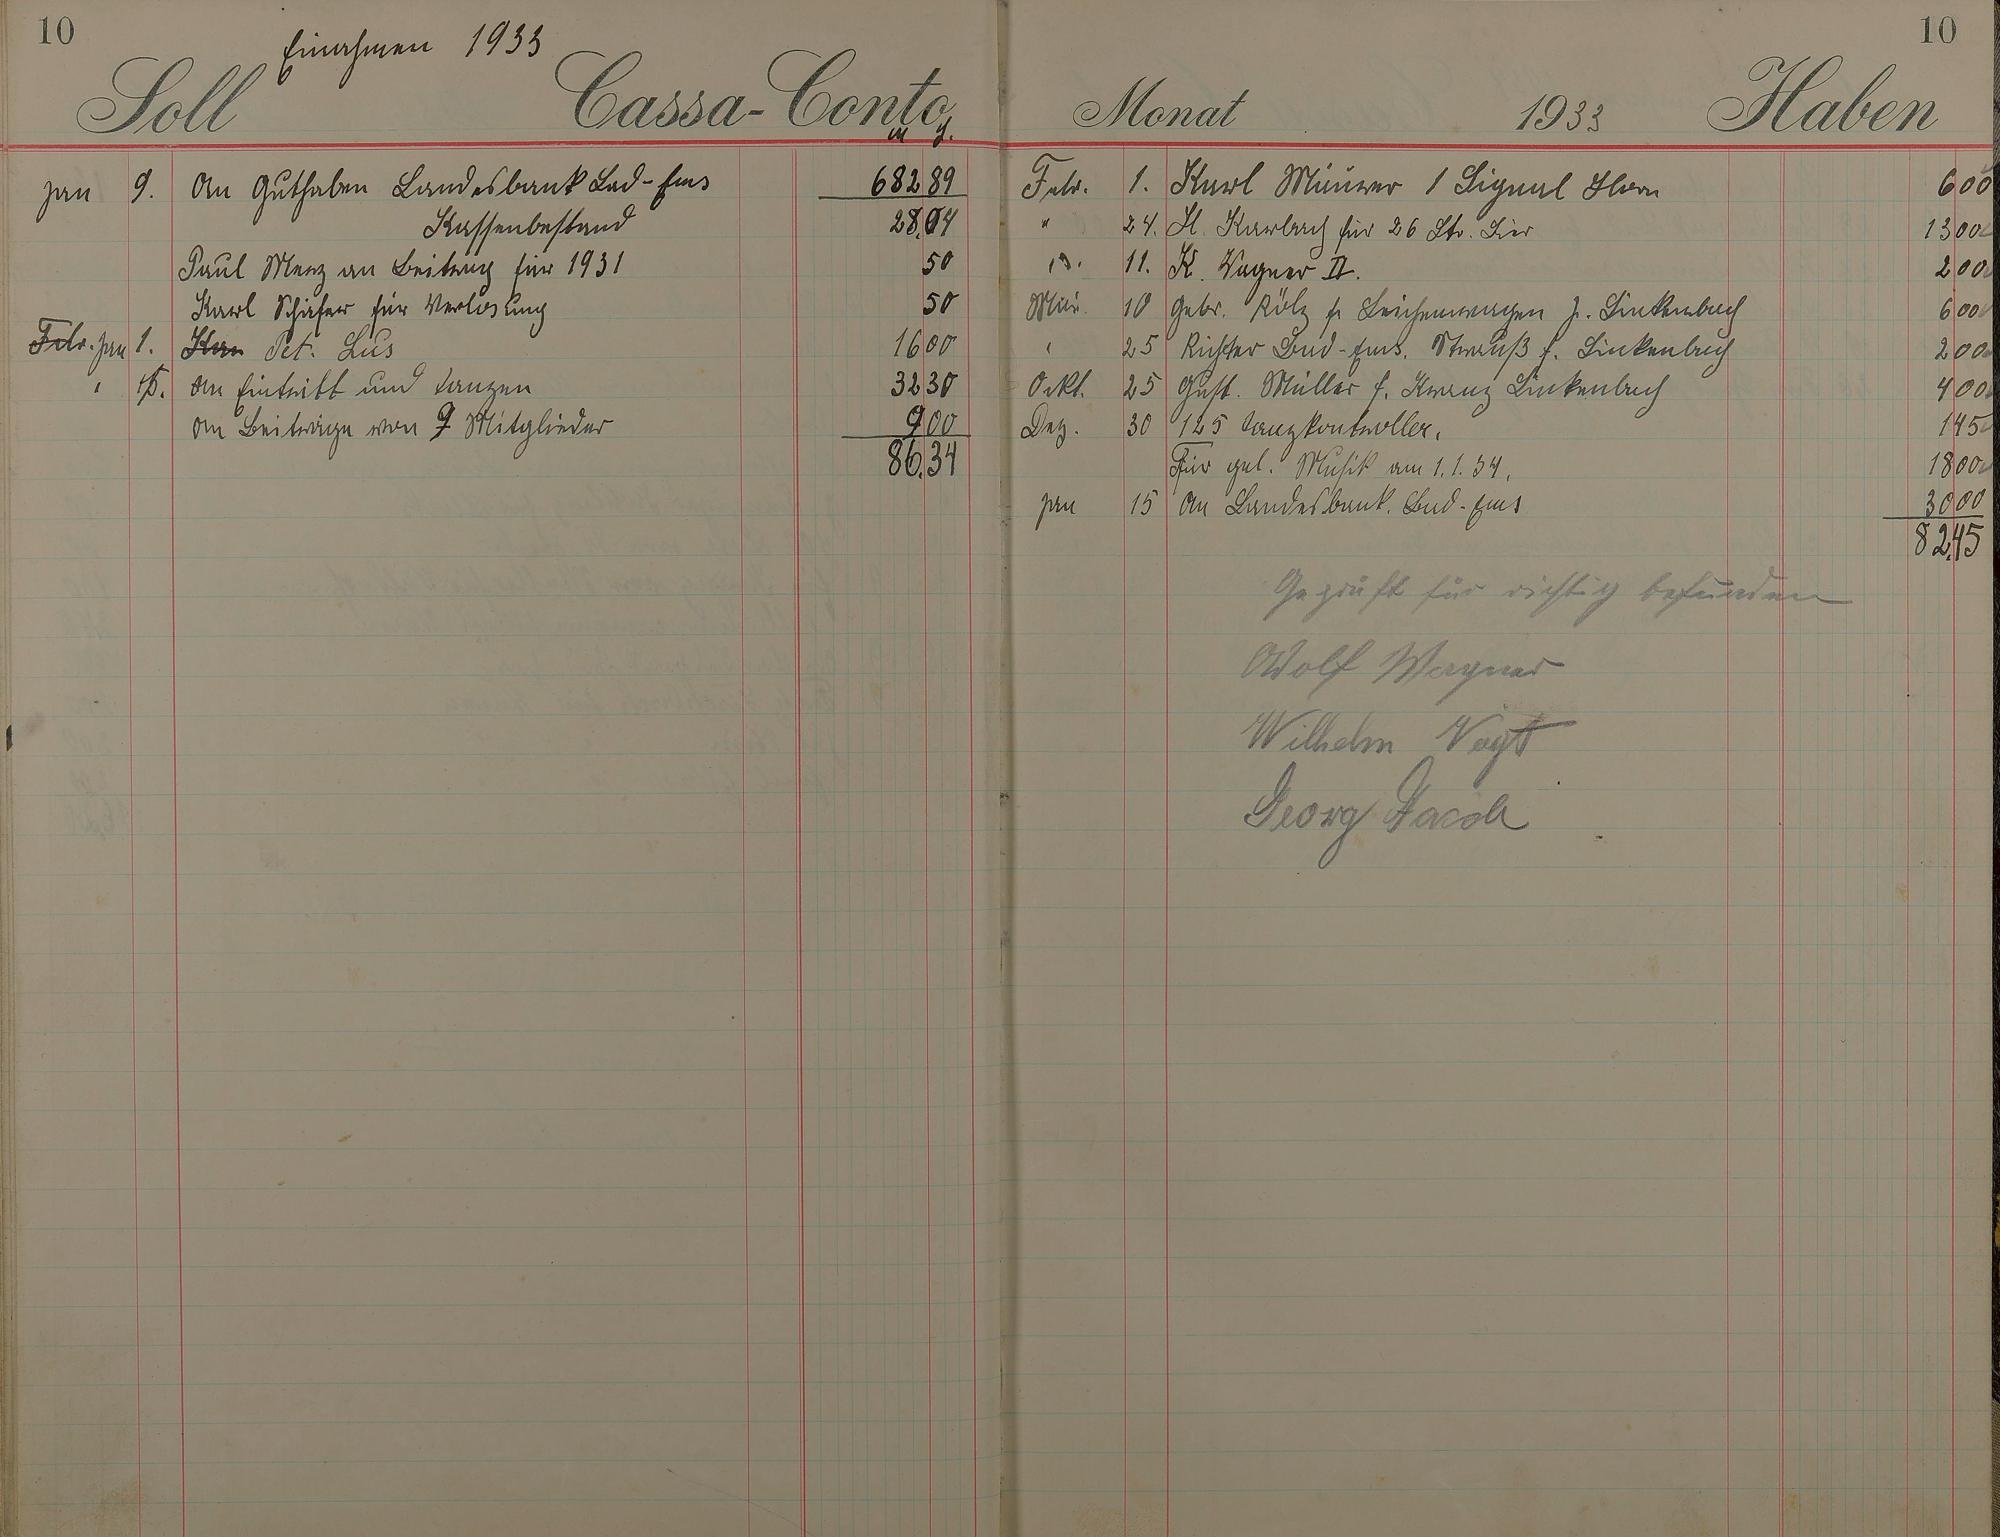 10
Einahmen 1933
Soll Cassa-Conto
M ₰.
Jan 9. An Guthaben Landesbank Bad-Ems 682 89
Kassenbestand 28,04
Paul Merz an Beitrag für 1931 50
Karl Schäfer für Verlosung 50
Febr. Jan 1. Kar Pet. Lus 16 00
" 15. An Eintritt und Tanzen 32 30
An Beiträge von 9 Mitglieder 9 00
86,34
10
Monat 1933 Haben
Febr. 1. Karl Maurer 1 Signal Horn 6 00
" 24. H. Karbach für 26 Ltr. Bier 13 00
11. K. Wagner II. 2 00
Mär. 10 Gebr. Rölz f. Leichenwagen J. Linkenbach 6 00
" 25 Richter Bad-Ems. Strauß f. Linkenbach 2 00
Ockt. 25 Gust. Müller f. Kranz Linkenbach 4 00
Dez. 30 125 Tanzkontroller. 1 45
Für gel. Musik am 1.1.34. 18 00
Jan 15 An Landesbank. Bad-Ems 30 00
82,45
Geprüft für richtig befunden
Adolf Wagner
Wilhelm Vogt
Georg Jacob